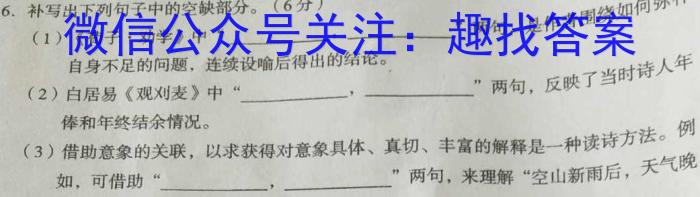 6. 补写出下列句子中的空缺部分。（6分）
微信公众号关注：趣找答案
（1） 中“ 是作者围绕如何弥补
自身不足的问题，连续设喻后得出的结论。
（2）白居易《观刈麦》中“__________，__________”两句，反映了当时诗人年
俸和年终结余情况。
（3）借助意象的关联，以求获得对意象具体、真切、丰富的解释是一种读诗方法。例
如，可借助“__________，__________”两句，来理解“空山新雨后，天气晚